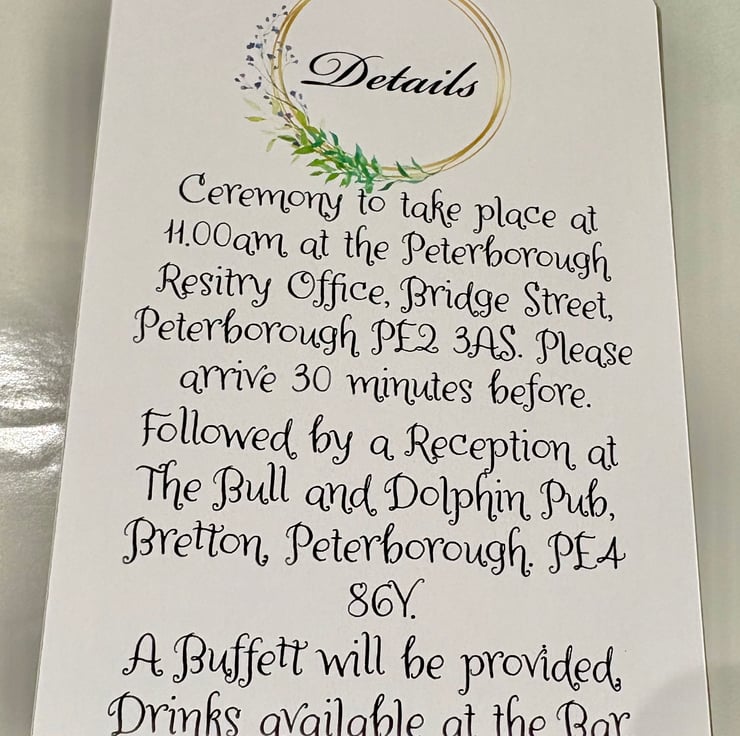 Details
Ceremony to take place at
11.00am at the Peterborough
Resitry Office, Bridge Street,
Peterborough PE2 3AS. Please
arrive 30 minutes before.
Followed by a Reception at
The Bull and Dolphin Pub,
Bretton, Peterborough. PE4
8GY.
A Buffett will be provided,
Drinks available at the Bar